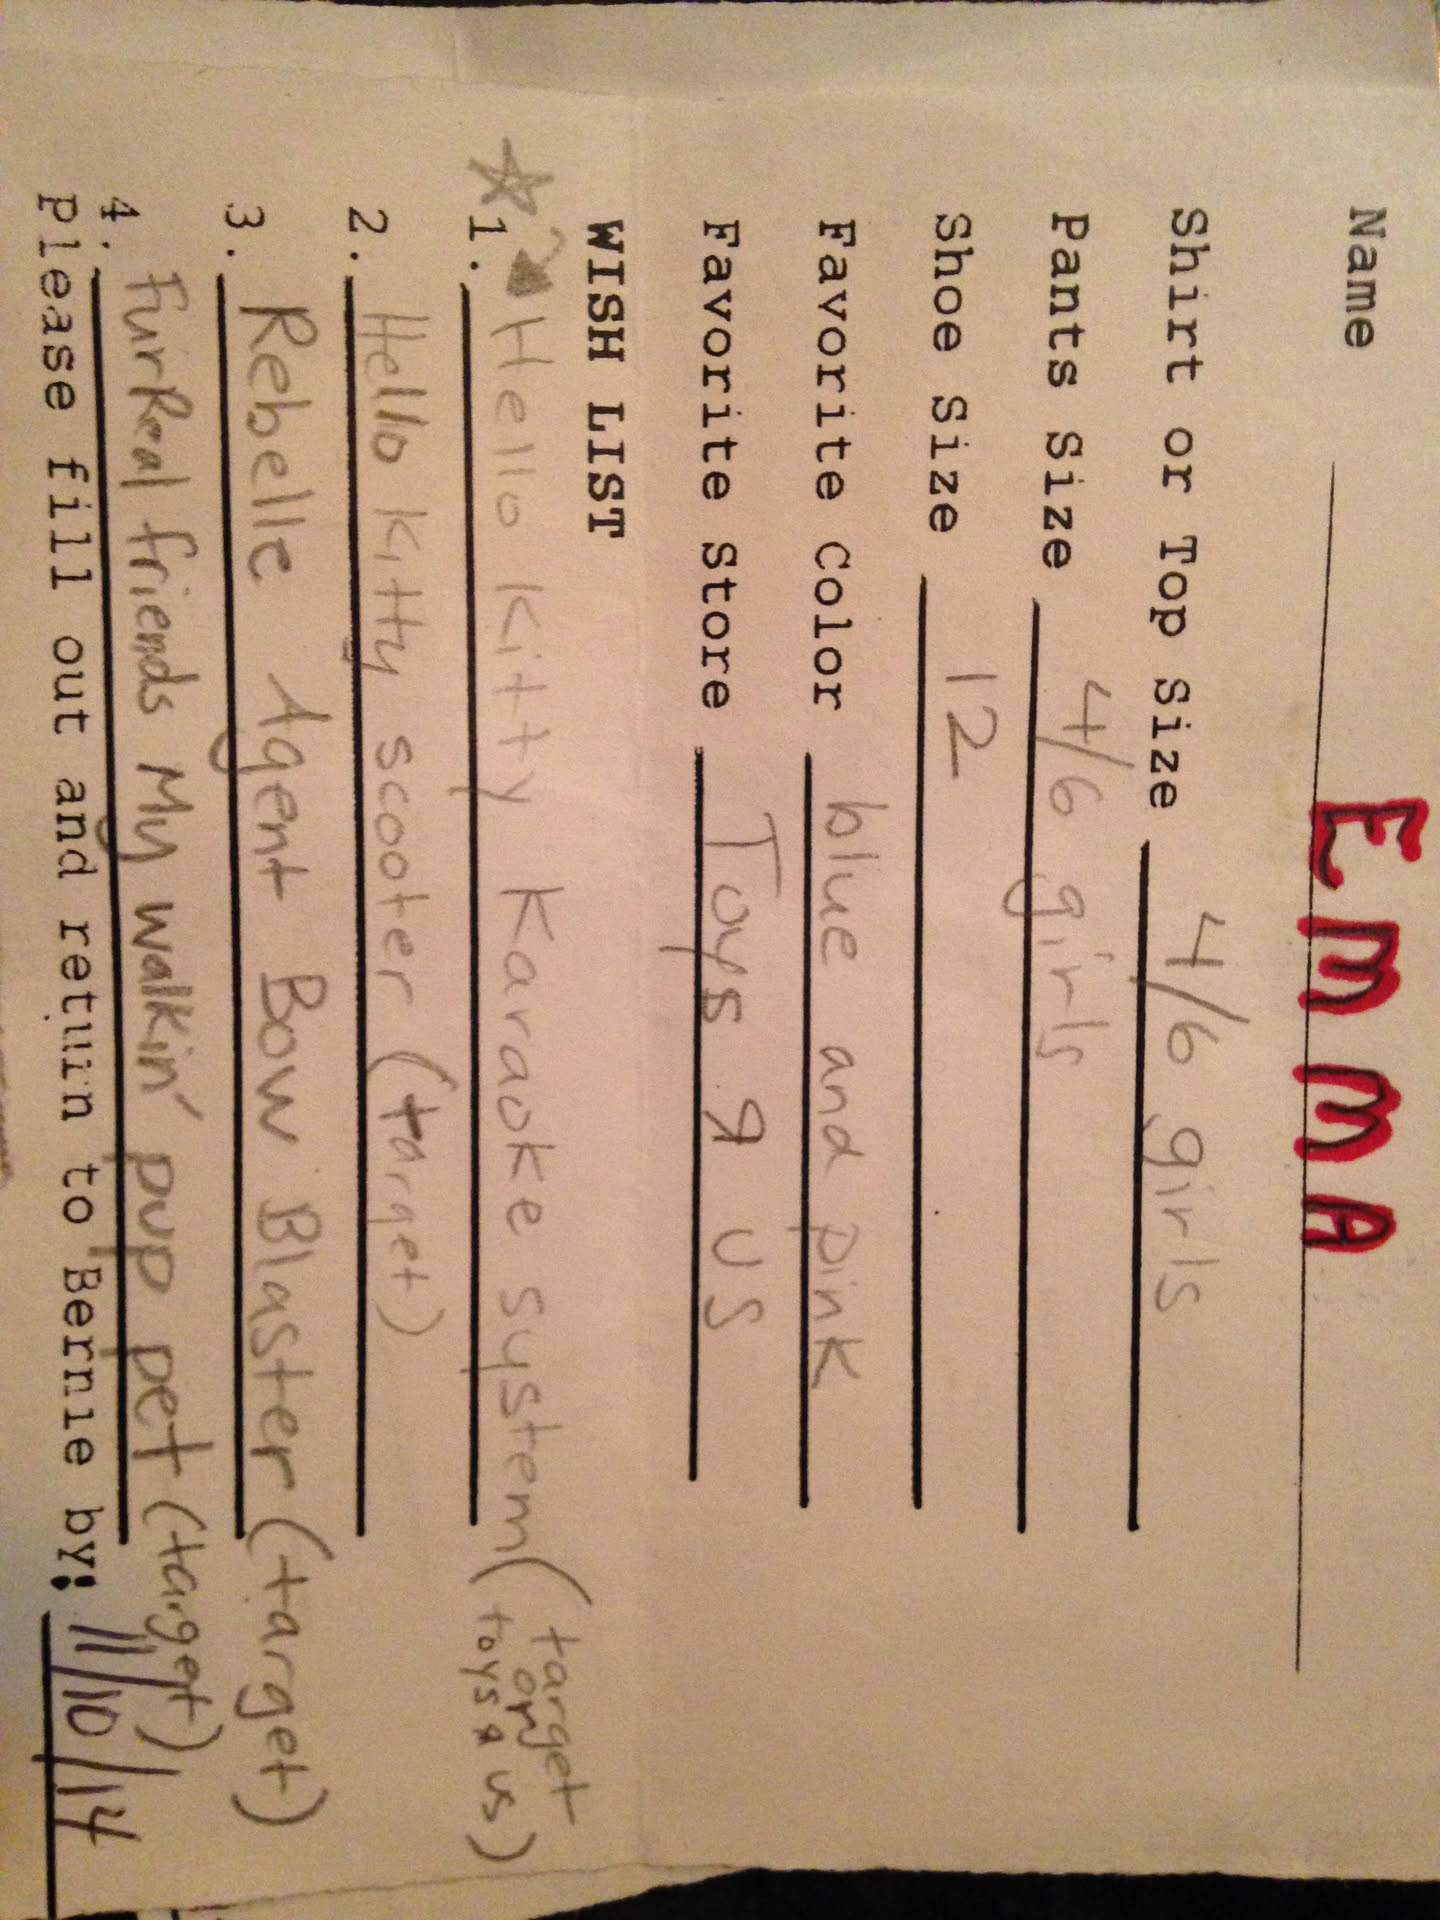 Name EmmA
Shirt or Top Size 4/6 girls
Pants Size 4/6 girls
Shoe Size 12
Favorite Color blue and pink
Favorite Store Toys R US
WISH LIST
1. Hello Kitty Karaoke system (target or toys R us)
2. Hello Kitty scooter (target)
3. Rebelle Agent Bow Blaster (target)
4. FurReal friends My walkin' pup pet (target)
Please fill out and return to Bernie by: 11/10/14